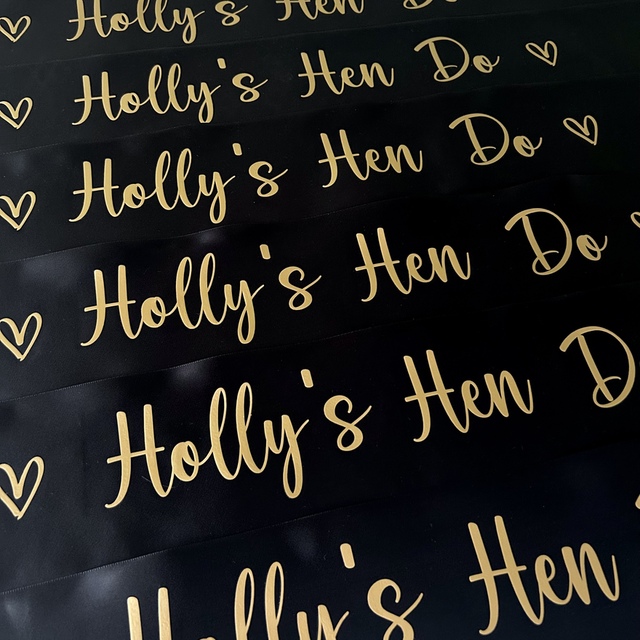 Holly's Hen Do
Holly's Hen Do
Holly's Hen Do
Holly's Hen Do
Holly's Hen D
Holly's Hen